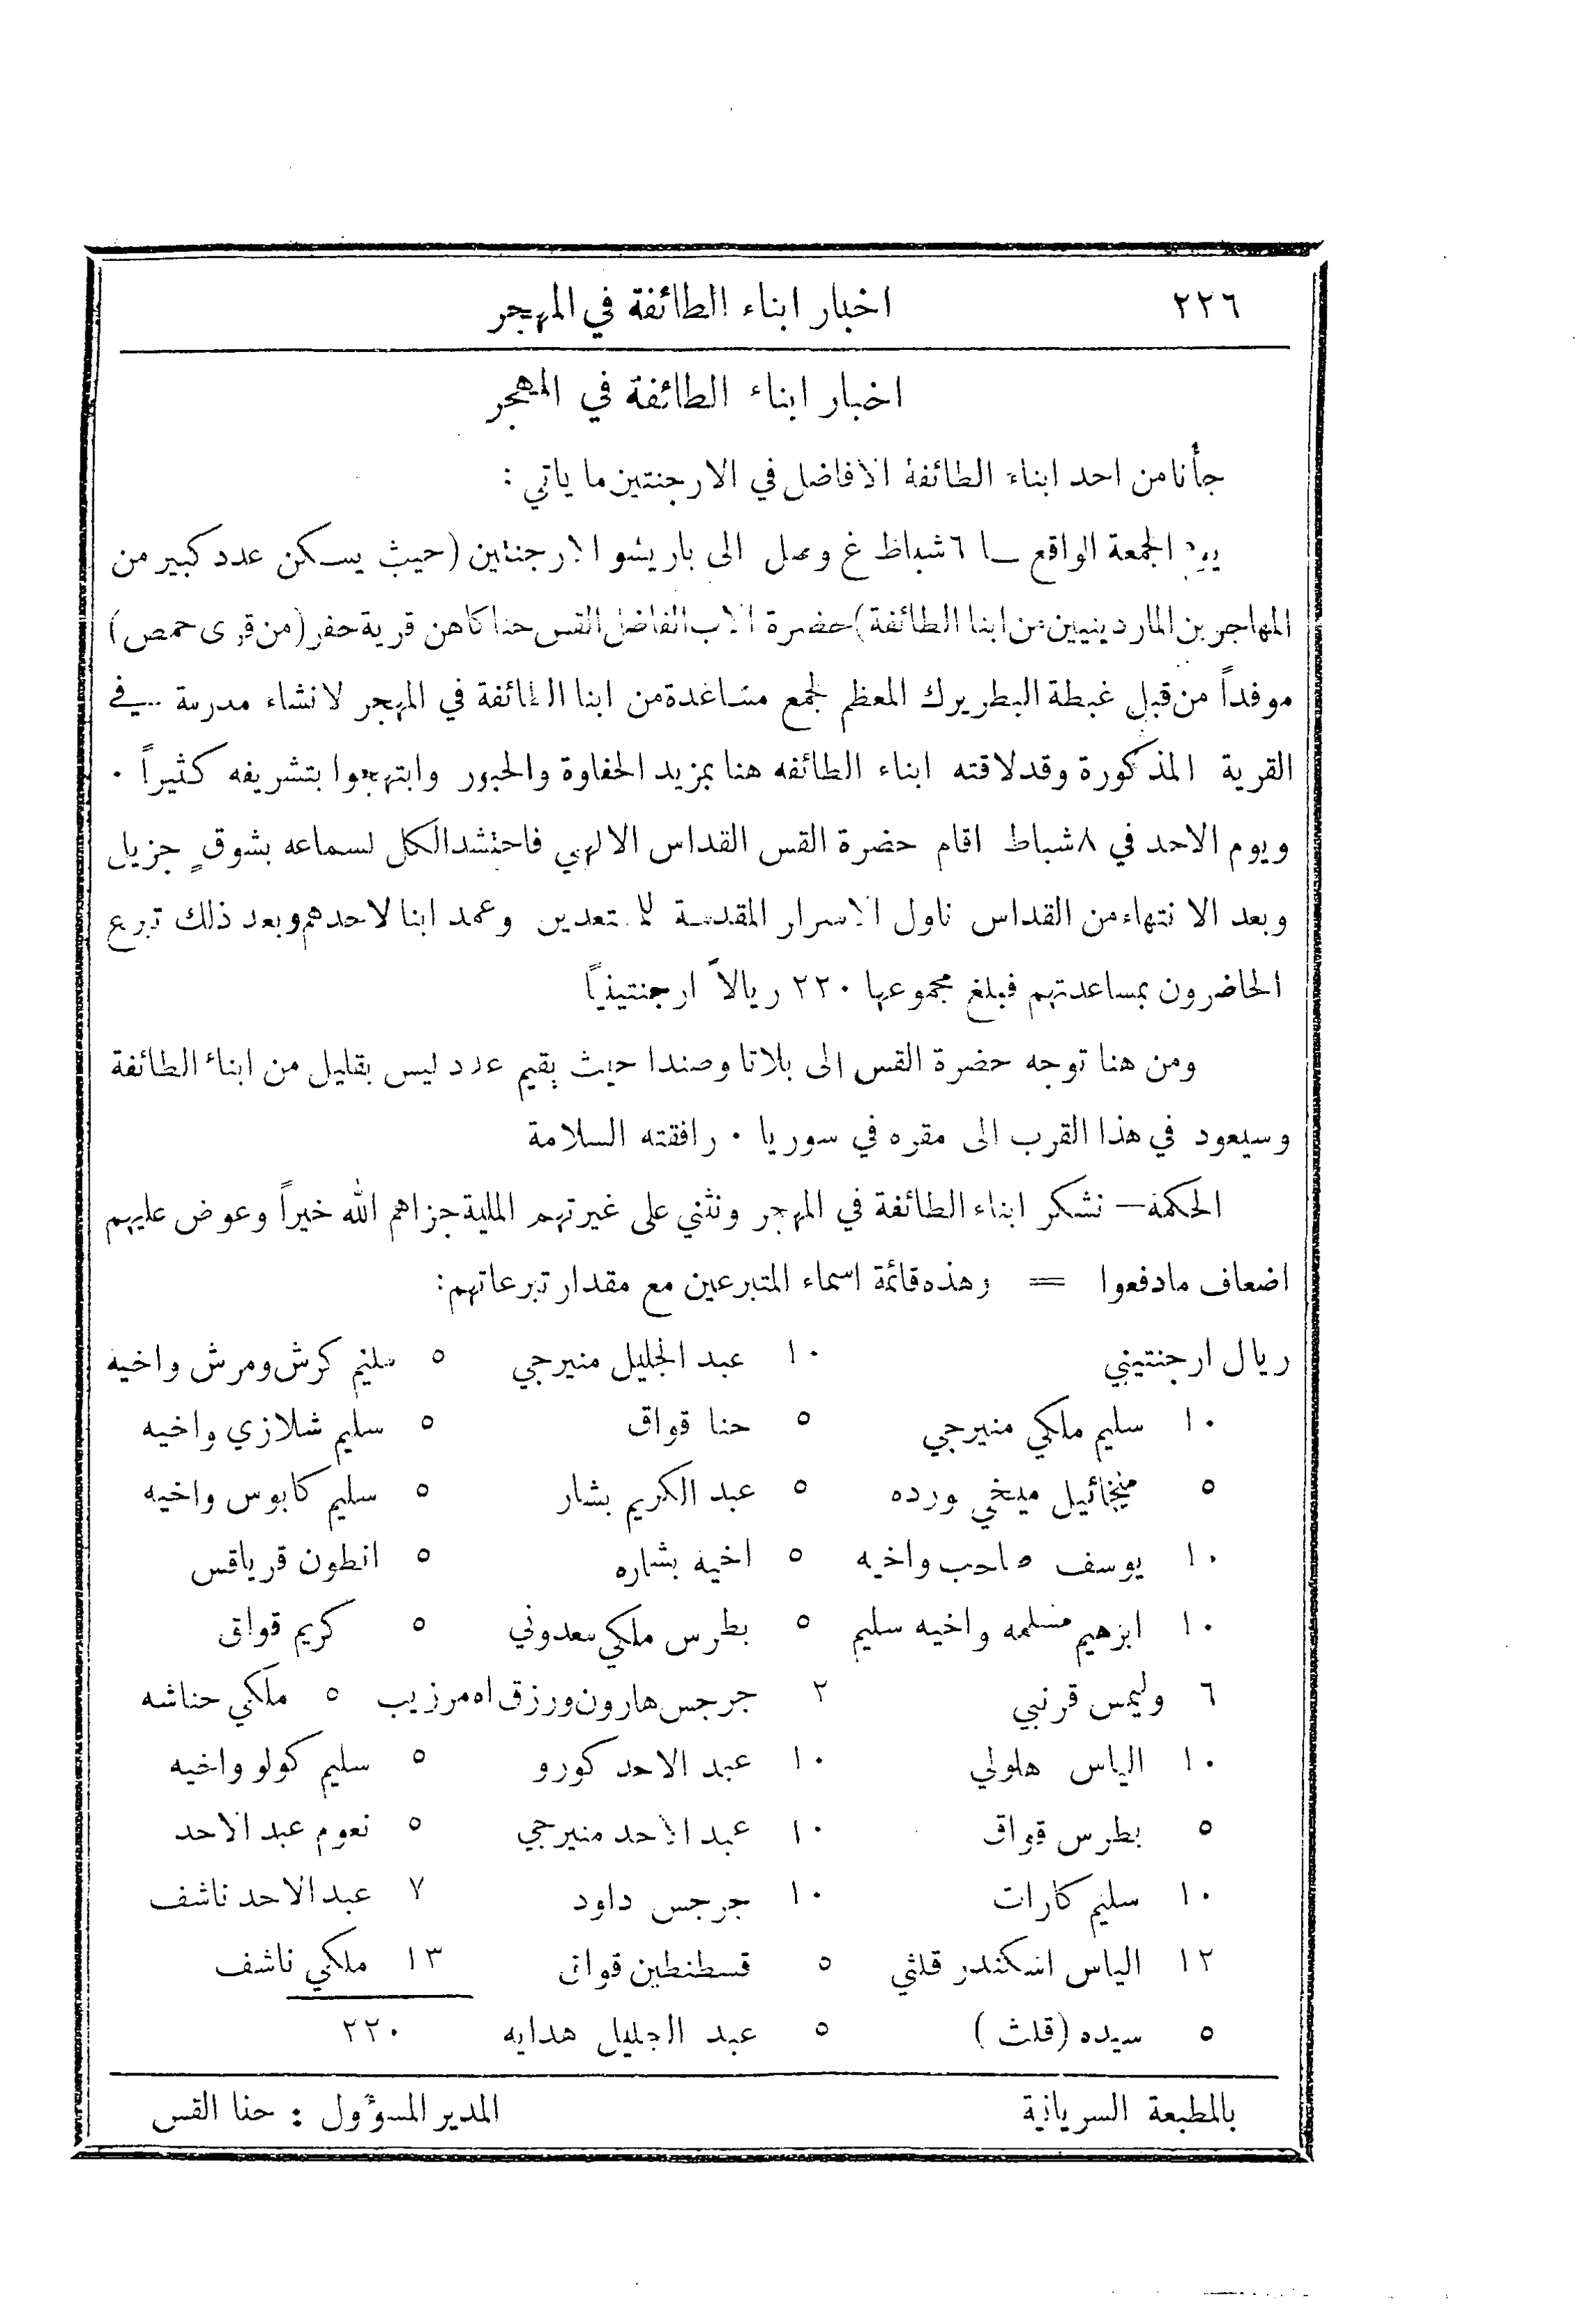 ٢٢٦ اخبار ابناء الطائفة في المهجر
اخبار ابناء الطائفة في المهجر
جأنا من احد ابناء الطائفة الافاضل في الارجنتين ما ياتي :
يوم الجمعة الواقع في ٦ شباط غ وصل الى باريشو الارجنتين (حيث يسكن عدد كبير من
المهاجرين الماردينيين من ابنا الطائفة) حضرة الاب الفاضل القس حنا كاهن قرية حفر (من قرى حمص)
موفداً من قبل غبطة البطريرك المعظم لجمع مساعدة من ابنا الطائفة في المهجر لانشاء مدرسة في
القرية المذكورة وقد لاقته ابناء الطائفه هنا بمزيد الحفاوة والحبور وابتهجوا بتشريفه كثيراً .
ويوم الاحد في ٨ شباط اقام حضرة القس القداس الالهي فاحتشد الكل لسماعه بشوقٍ جزيل
وبعد الانتهاء من القداس ناول الاسرار المقدسة للمتعدين وعمد ابنا لاحدهم وبعد ذلك تبرع
الحاضرون بمساعدتهم فبلغ مجموعها ٢٢٠ ريالاً ارجنتينياً
ومن هنا توجه حضرة القس الى بلاتا وصندا حيث يقيم عدد ليس بقليل من ابناء الطائفة
وسيعود في هذا القرب الى مقره في سوريا . رافقته السلامة
الحكمة — نشكر ابناء الطائفة في المهجر ونثني على غيرتهم الملية جزاهم الله خيراً وعوض عليهم
اضعاف مادفعوا = وهذه قائمة اسماء المتبرعين مع مقدار تبرعاتهم:
ريال ارجنتيني ١٠ عبد الجليل منيرجي ٥ سليم كرش ومرش واخيه
١٠ سليم ملكي منيرجي ٥ حنا قواق ٥ سليم شلازي واخيه
٥ ميخائيل ميخي ورده ٥ عبد الكريم بشار ٥ سليم كابوس واخيه
١٠ يوسف صاحب واخيه ٥ اخيه بشاره ٥ انطون قرياقس
١٠ ابرهيم مسلمه واخيه سليم ٥ بطرس ملكي سعدوني ٥ كريم قواق
٦ وليمس قرنبي ٢ جرجس هارون ورزق اه مرزيب ٥ ملكي حناشه
١٠ الياس هلولي ١٠ عبد الاحد كورو ٥ سليم كولو واخيه
٥ بطرس قواق ١٠ عبد الاحد منيرجي ٥ نعوم عبد الاحد
١٠ سليم كارات ١٠ جرجس داود ٧ عبد الاحد ناشف
١٢ الياس اسكندر قلثي ٥ قسطنطين قواق ١٣ ملكي ناشف
٥ سيده (قلث) ٥ عبد الجليل هدايه ٢٢٠
بالمطبعة السريانية المدير المسؤول : حنا القس